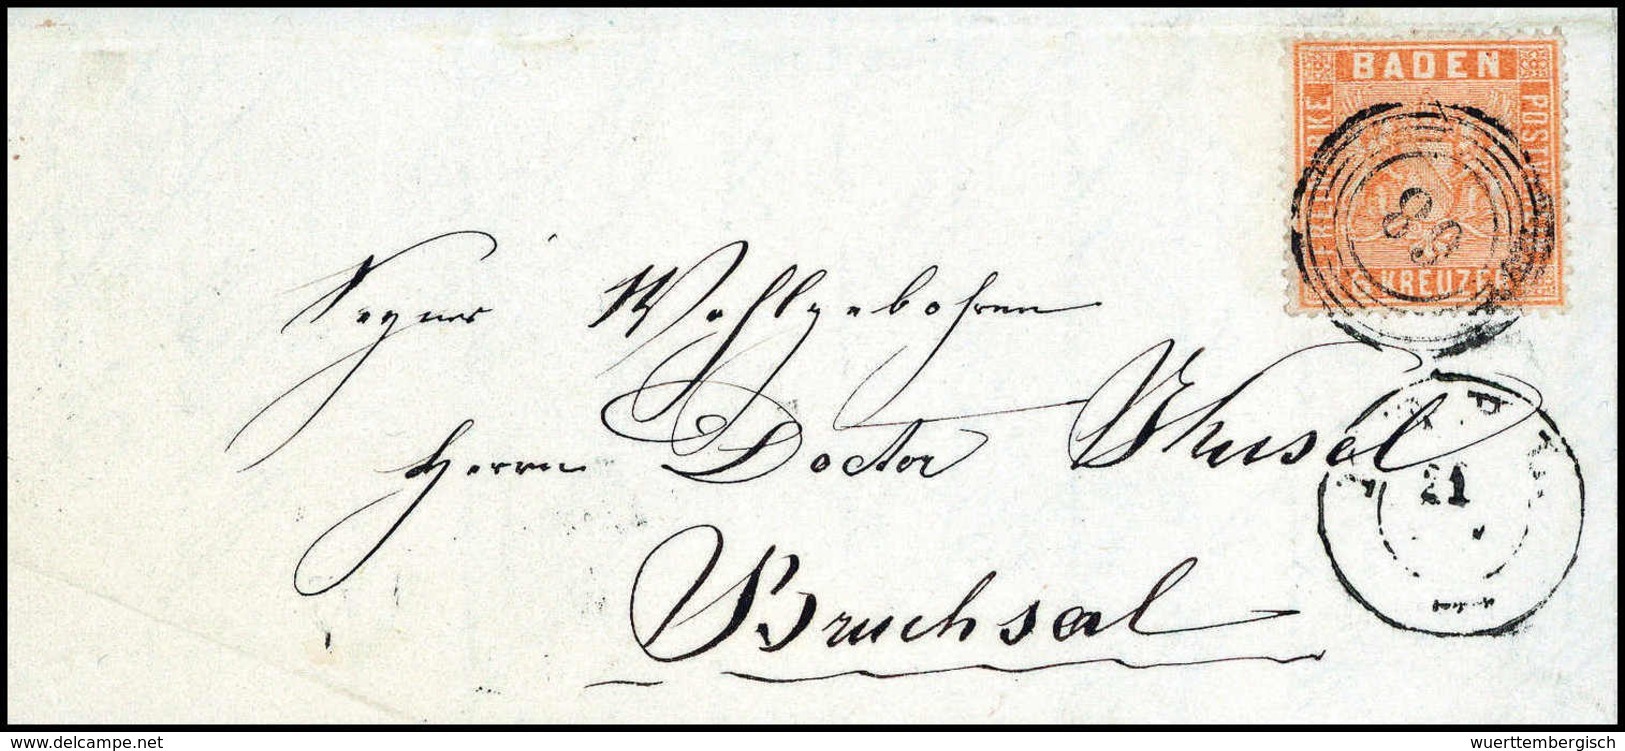 BADEN
FREIMARKE
POSTVEREIN
KREUZER
89
Seyner Wohlgebohren
Herrn Doctor
21
Bruchsal
www.delcampe.net
wuerttembergisch